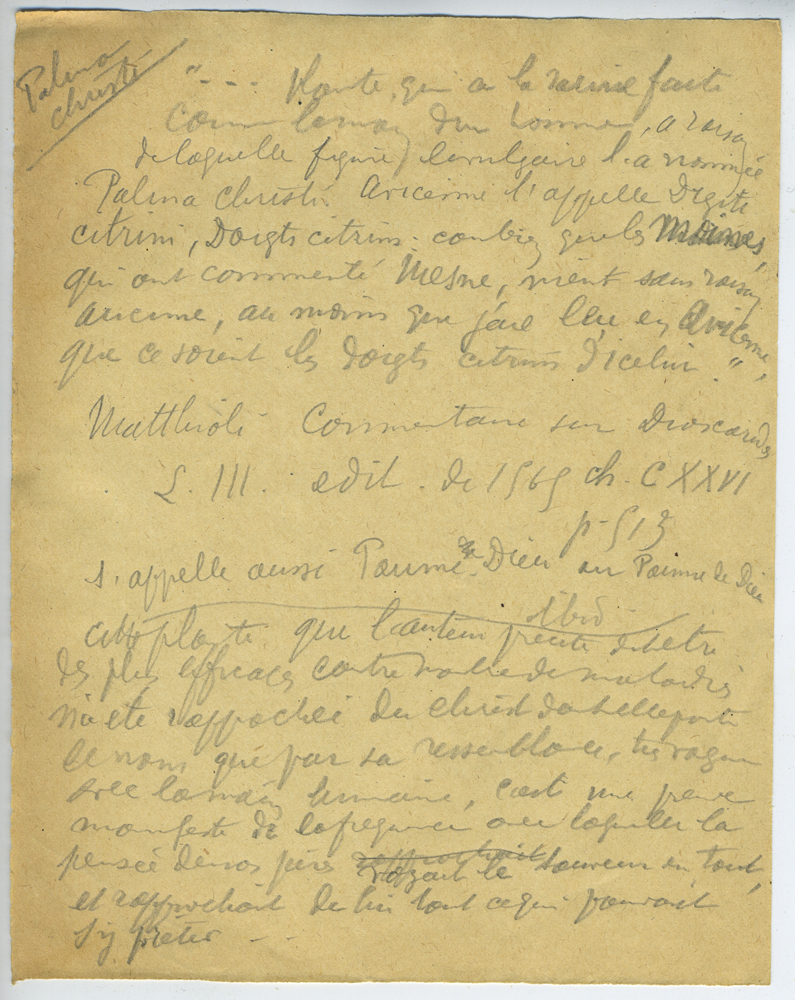 Palma
Christi
"--- Plante, qui a la racine faite
comme la main d'un homme, a raison
de laquelle figure, le vulgaire l'a nommée
Palma Christi. Avicenne l'appelle Digiti
citrini, Doigts citrins. combien que les Moines,
qui ont commenté Mesue, nient sans raison
avicenne, au moins que j'aie lue en Avicenne,
que ce soient les doigts citrins d'icelui ",
Matthioli Commentaire sur Dioscorides
L. III. edit. de 1565 ch. CXXVI
p. 513
s'appelle aussi Paume-de-Dieu ou Paume de Dieu
ibid
cette plante que l'auteur d'être
des plus efficaces contre nombre de maladies
n'a été rapprochée du Christ dont elle porte
le nom que par sa ressemblance, très vague
avec la main humaine, c'est une preuve
manifeste de la fréquence avec laquelle la
pensée de nos pères voyait le Sauveur en tout,
et rapprochait de lui tout ce qui pouvait
s'y prêter -